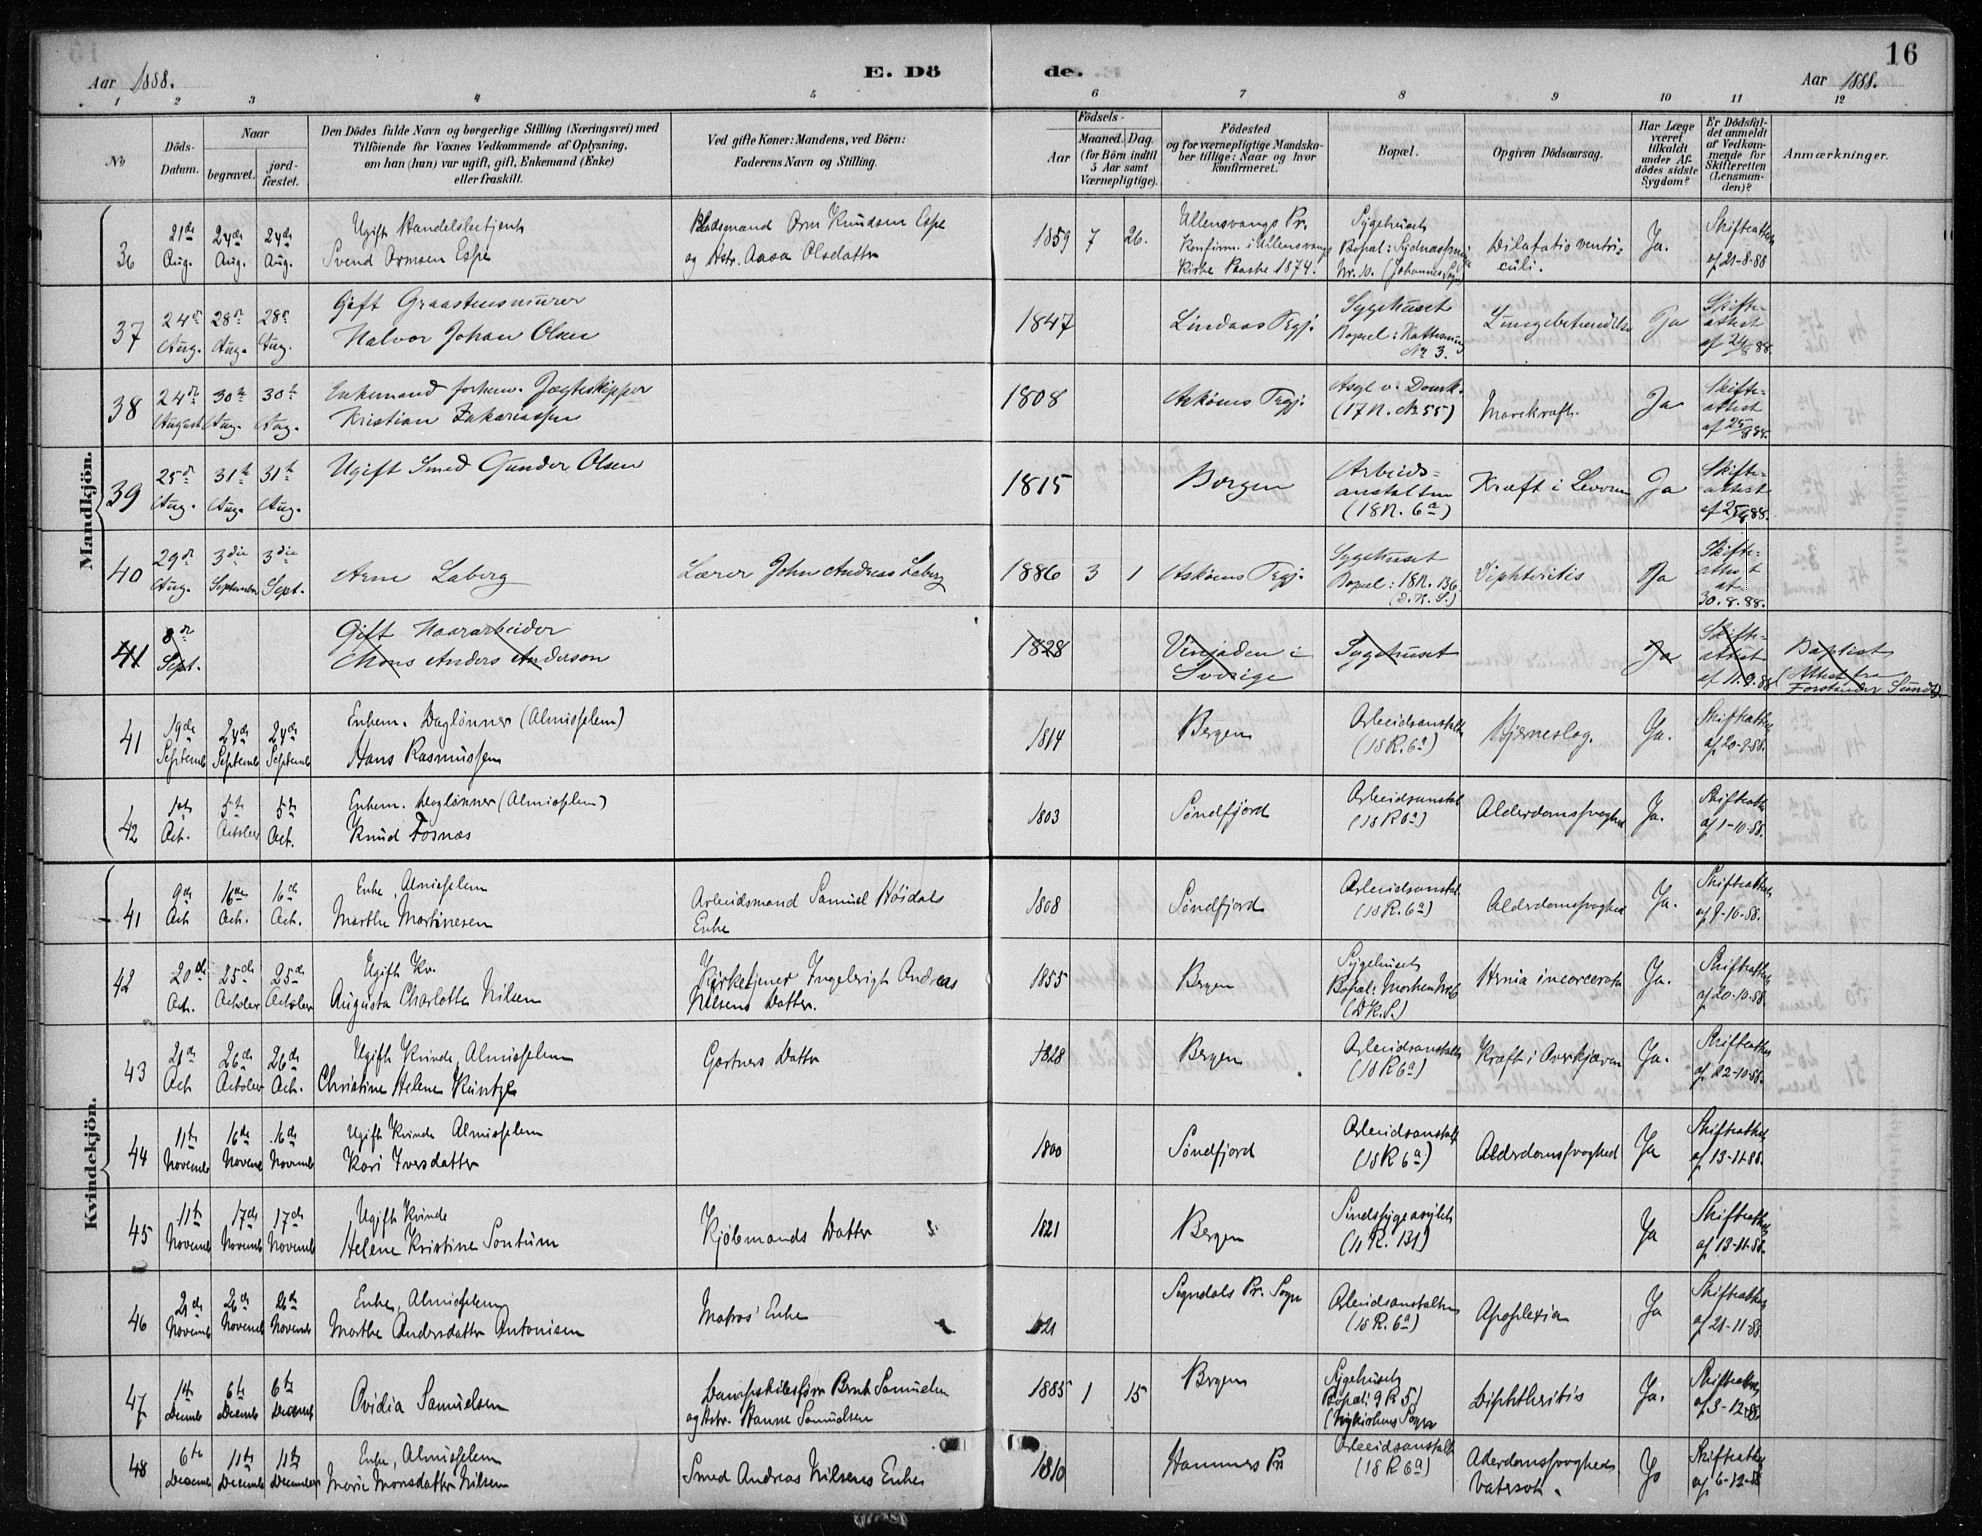 16
Aar 1888.
E. Dö
de.
Aar 1888.
1 2 3 4 5 6 7 8 9 10 11 12
No
Döds-
Datum.
Naar
begravet.
jord-
fæstet.
Den Dödes fulde Navn og borgerlige Stilling (Næringsvei) med
Tilföiende for Voxnes Vedkommende af Oplysning,
om han (hun) var ugift, gift, Enkemand (Enke)
eller fraskilt.
Ved gifte Koner: Mandens, ved Börn:
Faderens Navn og Stilling.
Födsels-
Aar
Maaned.
Dag.
(for Börn indtil
5 Aar samt
Værnepligtige).
Födested
og for værnepligtige Mandska-
ber tillige: Naar og hvor
konfirmeret.
Bopæl.
Opgiven Dödsaarsag.
Har Læge
været
tilkaldt
under Af-
dödes sidste
Sygdom?
Er Dödsfal-
det anmeldt
af Vedkom-
mende for
Skifteretten
(Lensman-
den)?
Anmærkninger.
Mandkjön.
36
21de Aug.
24de Aug.
24de Aug.
Ugift Handelsbetjent
Svend Ormsen Espe
Pladsmand Orm Knudsen Espe
og Hstr. Aasa Olsdatter
1859 7 26.
Ullensvangs Pr.
Konfirm. i Ullensvangs
Kirke Paaske 1874.
Sygehuset
Bopæl:
Nr. 10.
Dilatatio ventri-
culi.
Ja.
Skifteattest
af 21-8-88
37
24de Aug.
28de Aug.
28de Aug.
Gift Graastensmurer
Halvor Johan Olsen
1847
Lindaas Prgj.
Sygehuset
Bopæl:
No 3.
Lungebetændelse
Ja
Skifte-
attest
af 24/8 88.
38
24de August
30te Aug.
30te Aug.
Enkemand forhenv. Jægteskipper
Kristian Zakariassen
1808
Askøens Prgj.
(17 R. No 55)
Mavekræft.
Ja
Skifte-
attest
af 25/8 88.
39
25de Aug.
31te Aug.
31te Aug.
Ugift Smed Gunder Olsen
1815
Bergen
Arbeids-
anstalten
(18 R. 6a)
Kræft i Leveren
Ja
Skifte-
attest
af 25/8 88.
40
29de Aug.
3die September
3die Sept.
Arne Laberg
Lærer John Andreas Laberg
1886 3 1
Askøens Prgj.
Sygehuset
Bopæl: 18 R. 136
(D. K. S.)
Diphteritis
Ja
Skifte-
attest
af
30.8.88.
41
8de Sept.
Gift Haararbeider
Mons Anders Anderson
1828
Vinjaden i
Sverige
Sygehuset
Ja
Skifte-
attest
af 11.9.88
Baptist
(Attest fra
Forstander Sundt)
41
19de Septemb
24de Septemb
24de Septemb
Enkem. Daglønner (Almisselem)
Hans Rasmussen
1814
Bergen
Arbeidsanstalt
(18 R. 6a)
Hjerneslag.
Ja.
Skifteattest
af 20-9-88.
42
1ste Oct.
5te October
5te Oct.
Enkem. Daglønner (Almisselem)
Knud Fosnæs
1803
Søndfjord
Arbeidsanstal
(18 R 6a)
Alderdomssvaghed
Ja.
Skifteattest
af 1-10-88.
Kvindekjön.
41
9de Oct
16de Oct.
16de Oct.
Enke, Almisselem
Marthe Martinesen
Arbeidsmand Samuel Høidals
Enke
1808
Søndfjord
Arbeidsanstal
(18 R. 6a)
Alderdomssvaghed
Ja.
Skifteattest
af 9-10-88.
42
20de Oct.
25de October
25de October
Ugift Kv.
Augusta Charlotte Nilsen
Kirketjener Ingebrigt Andreas
Nilsens Datter.
1855
Bergen
Sygehuset
Bopæl:
(D K. S.)
Hernia incarcerata
Ja.
Skifteattest
af 20-10-88.
43
21de Oct
26de October
26de Oct.
Ugift Kvinde, Almisselem
Christine Helene Küntzel
Gartners Datter
1828
Bergen
Arbeidsanstalts
(18 R 6a)
Kræft i Overkjæven
Ja.
Skifteattest
af 22-10-88.
44
11te Novemb
16de Novemb
16de Novemb
Ugift Kvinde Almisselem
Kari Iversdatter
1800
Søndfjord
Arbeidsanstalt
(18 R 6a)
Alderdomssvaghed
Ja
Skifteattest
af 13-11-88.
45
11te Novemb
17de Novemb
17de Novemb
Ugift Kvinde
Helene Kristine Sontum
Kjøbmands Datter
1821
Bergen
Sindssygeasylet
(11 R. 131)
Ja
Skifteattest
af 13-11-88.
46
21de Novemb
26de Novemb
26de Novemb
Enke, Almisselem
Marthe Andersdatter Antonisen
Matros' Enke
1821
Sogndals Pr. Sogn
Arbeidsanstalten
(18 R. 6a)
Apoplexia
Ja
Skifteattest
af 21-11-88.
47
1ste Decemb
6te Decemb
6te Decemb
Ovidia Samuelsen
Dampskibsfører Bernt Samuelsen
og Hstr. Hanne Samuelsen
1885 1 15
Bergen
Sygehuset
Bopæl: 9 R 5)
(Nykirkens Sogn
Diphtheritis
Ja.
Skifteattest
af 3-12-88.
48
6te Decemb
11te Decemb
11te December
Enke, Almisselem
Marie Monsdatter Nilsen
Smed Andreas Nilsens Enke
1810
Hammers Pr
Arbeidsanstalt
(18 R 6a)
Alderdomssvagheds
Vatersot.
Ja
Skifteattest
af 6-12-88